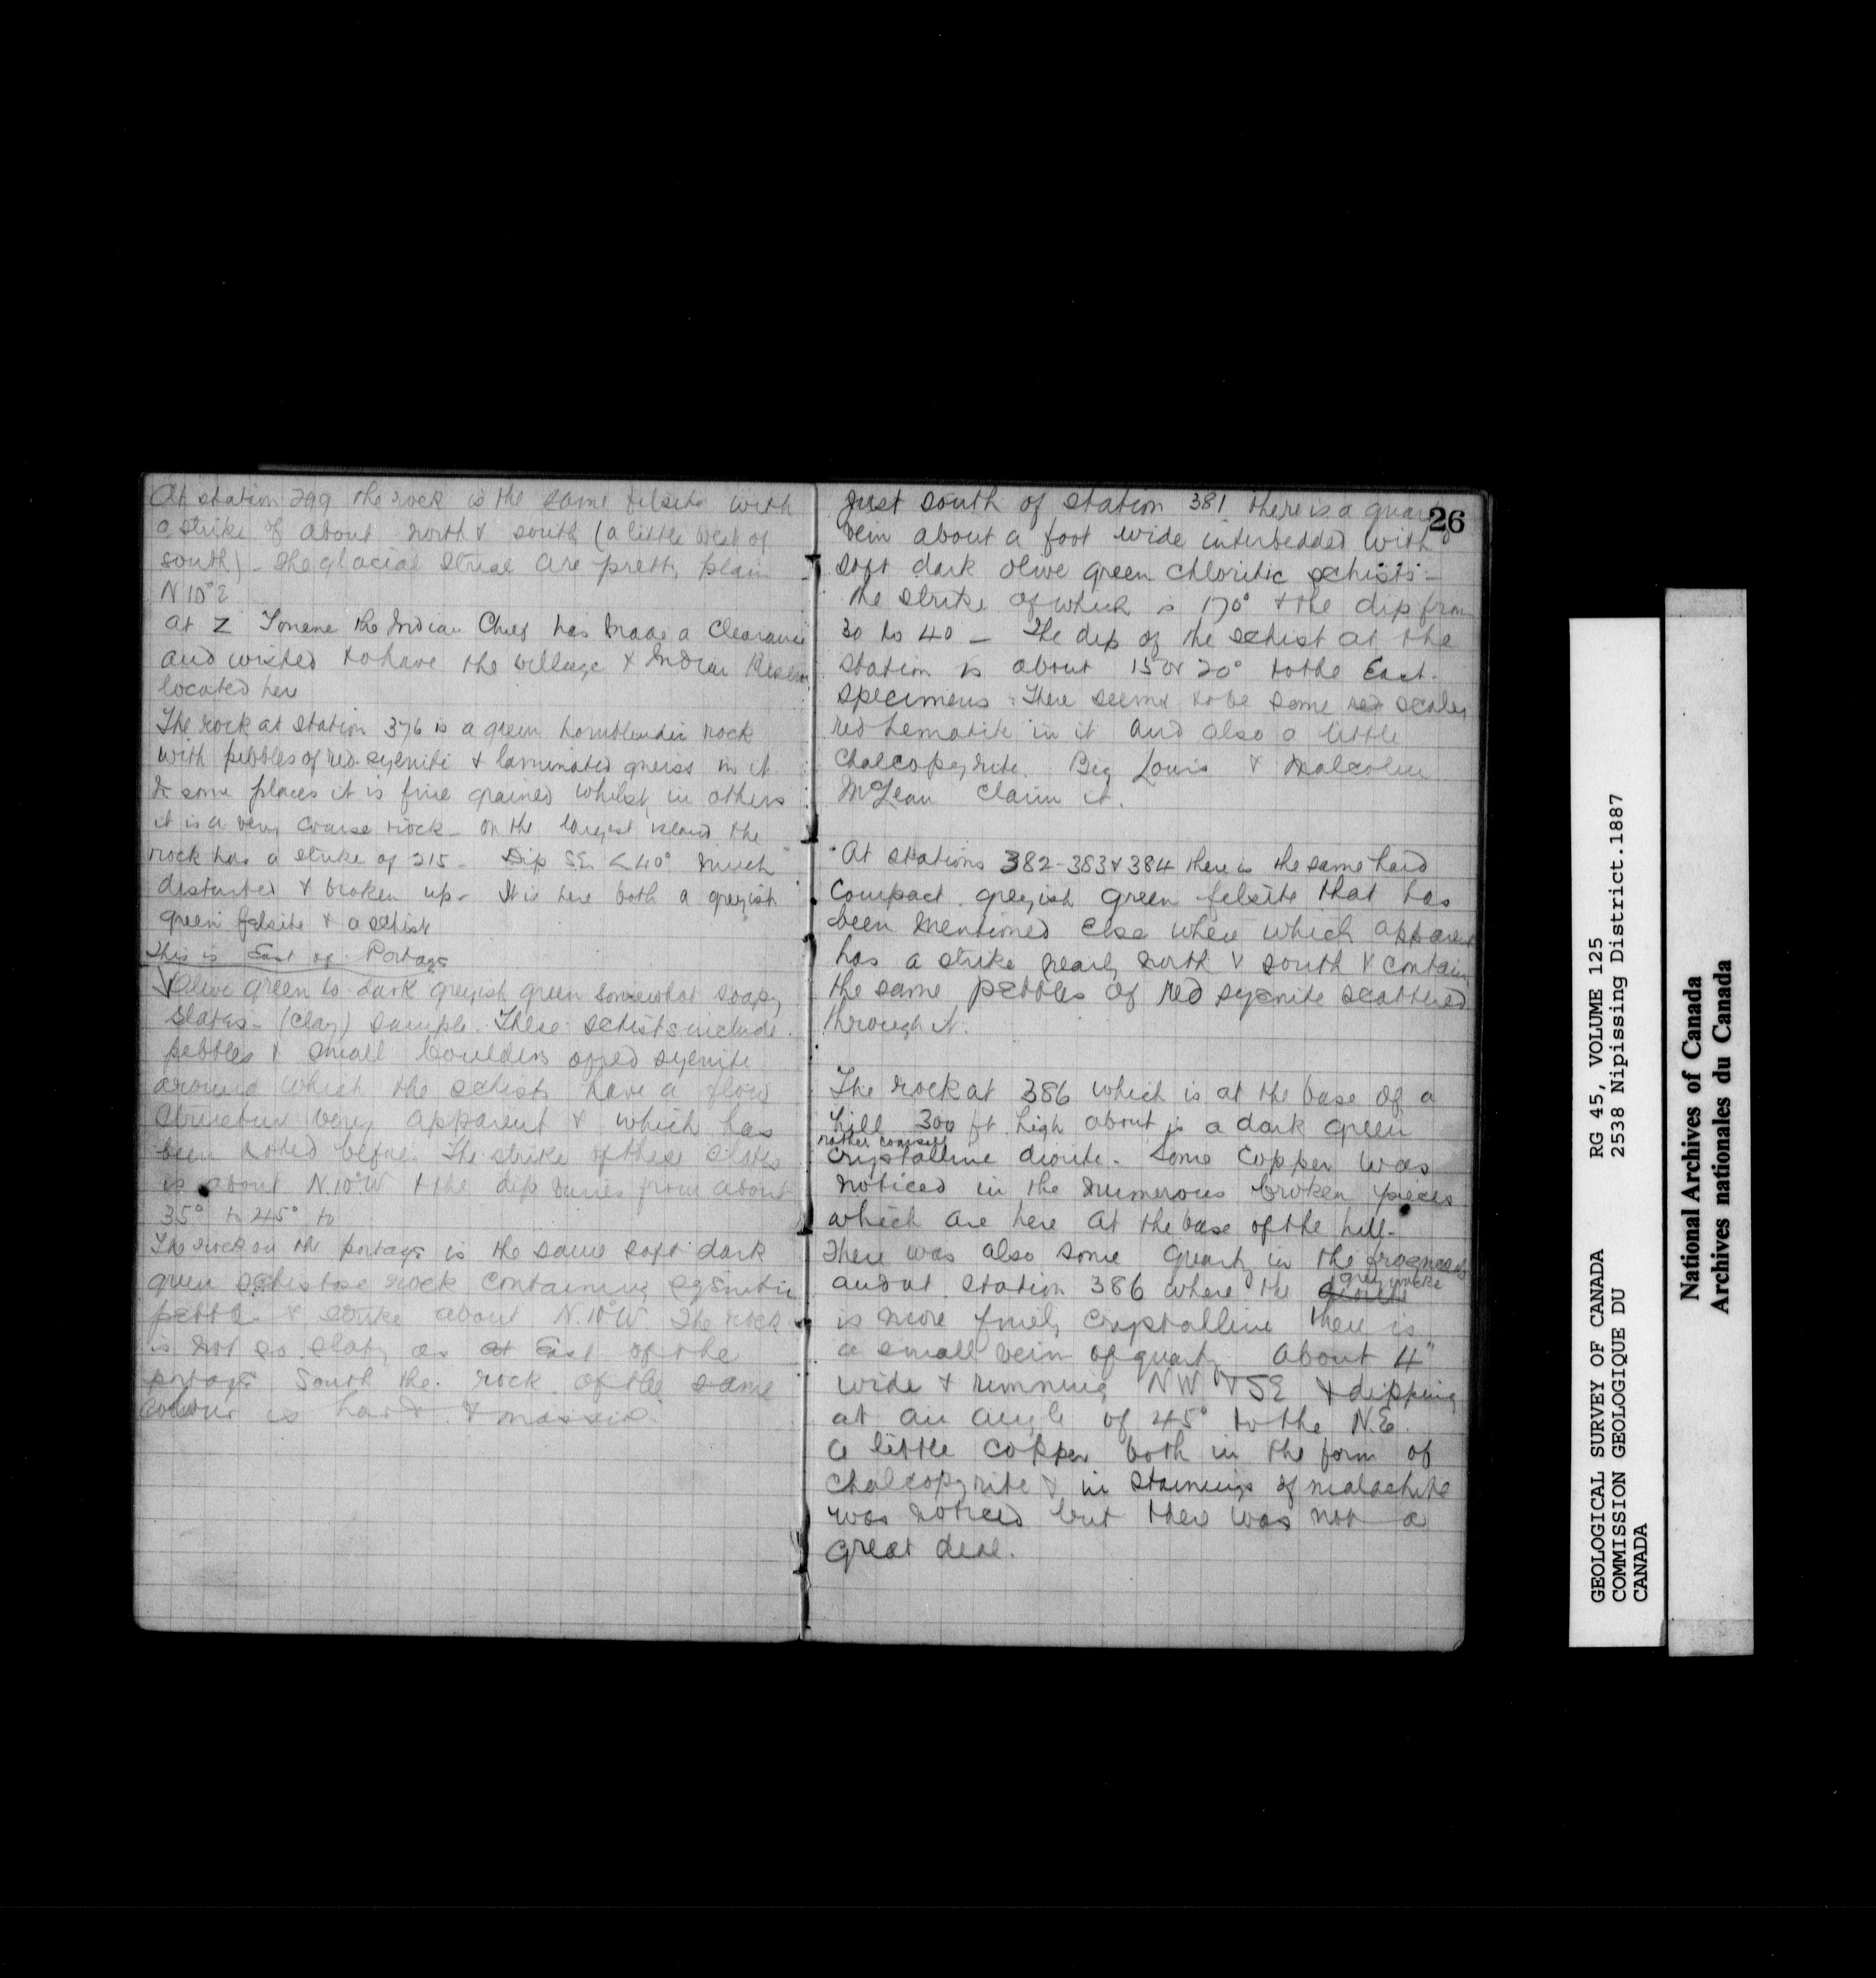 At station 299 the rock is the same felsite with
a strike of about north & south (a little West of
south) - The glacial striae are pretty plain
N10°E
at Z Tonene the Indian Chief has made a Clearance
and wished to have the village & Indian Reserve
located here
The rock at station 376 is a green hornblendic rock
with pebbles of red syenite & laminated gneiss in it
In some places it is fine grained whilst in others
it is a very coarse rock - on the largest island the
rock has a strike of 215 - Dip SE. <40° Much
disturbed & broken up - It is here both a greyish
green felsite & a schist
This is East of Portage
Olive green to dark greyish green somewhat soapy
slates - (clay) sample. These schists include
pebbles & small boulders of red syenite
around which the schists have a flow
structure very apparent & which has
been noted before. The strike of these slates
is about N.10°W & the dip varies from about
35° to 45° to
The rock on the portage is the same soft dark
green schistose rock containing syenitic
pebble & strike about N.10°W. The rock
is not so slaty as at East of the
portage South the rock of the same
colour is hard & massive.
Just south of station 381 there is a quartz
26
vein about a foot wide interbedded with
soft dark olive green chloritic schists -
the strike of which is 170° & the dip from
30 to 40 - The dip of the schist at the
station is about 15 or 20° to the East.
specimens - There seems to be some red scales
red hematite in it and also a little
Chalcopyrite. Big Louis & Malcolm
McLean claim it.
At stations 382-383 & 384 there is the same hard
compact greyish green felsite that has
been mentioned else where which apparent
has a strike nearly north & south & contain
the same pebbles of red syenite scattered
through it.
The rock at 386 which is at the base of a
hill 300 ft high about is a dark green
rather coarsely
crystalline diorite. Some Copper was
noticed in the numerous broken pieces
which are here at the base of the hill.
There was also some quartz in the fragments
greywacke
and at station 386 where the diorite
is more finely crystalline there is
a small vein of quartz about 4"
wide & running NW & SE & dipping
at an angle of 45° to the N.E.
a little copper both in the form of
chalcopyrite & in stainings of malachite
was noticed but there was not a
great deal.
GEOLOGICAL SURVEY OF CANADA RG 45, VOLUME 125
COMMISSION GEOLOGIQUE DU 2538 Nipissing District.1887
CANADA
National Archives of Canada
Archives nationales du Canada